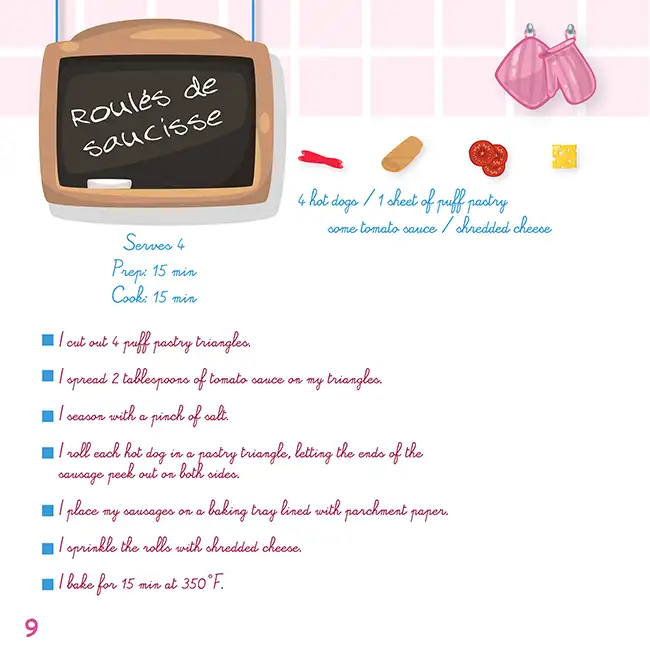 Roulés de
saucisse
4 hot dogs / 1 sheet of puff pastry
some tomato sauce / shredded cheese
Serves 4
Prep: 15 min
Cook: 15 min
I cut out 4 puff pastry triangles.
I spread 2 tablespoons of tomato sauce on my triangles.
I season with a pinch of salt.
I roll each hot dog in a pastry triangle, letting the ends of the
sausage peek out on both sides.
I place my sausages on a baking tray lined with parchment paper.
I sprinkle the rolls with shredded cheese.
I bake for 15 min at 350°F.
9